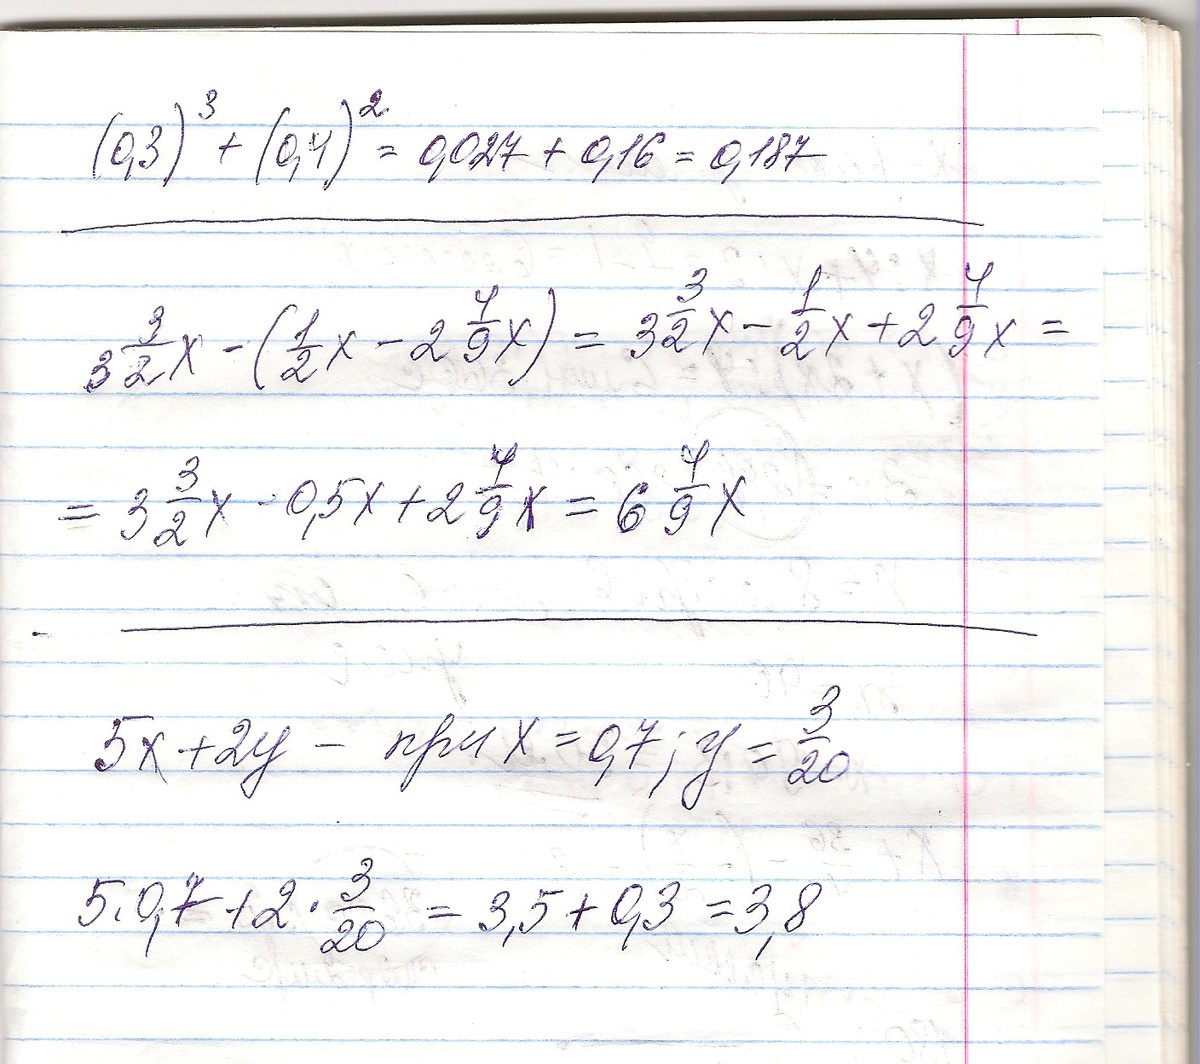 (0,3)³ + (0,4)² = 0,027 + 0,16 = 0,187
3 3/2 x - (1/2 x - 2 4/9 x) = 3 3/2 x - 1/2 x + 2 4/9 x =
= 3 3/2 x - 0,5x + 2 4/9 x = 6 4/9 x
5x + 2y - при x = 0,7; y = 3/20
5·0,7 + 2 · 3/20 = 3,5 + 0,3 = 3,8